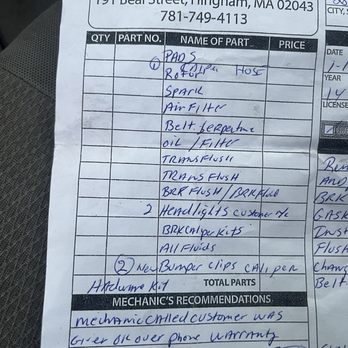 191 Beal Street, Hingham, MA 02043
781-749-4113
CITY, S
QTY PART NO. NAME OF PART PRICE
PADS
1 Rotor HOSE
Spark
Air Filter
Belt Serpentine
oil / Filter
TRANS Flush
TRANS Flush
BRK Flush / BRK Fluid
2 Headlights customer
BRK Caliper kits
All Fluids
2 New Bumper clips Caliper
Hardware Kit TOTAL PARTS
MECHANIC'S RECOMMENDATIONS
mechanic called customer was
over phone warranty
DATE
1-1
YEAR
14
LICENSE
AND
BRK
GASK
Inst
Flush
Chang
Belt